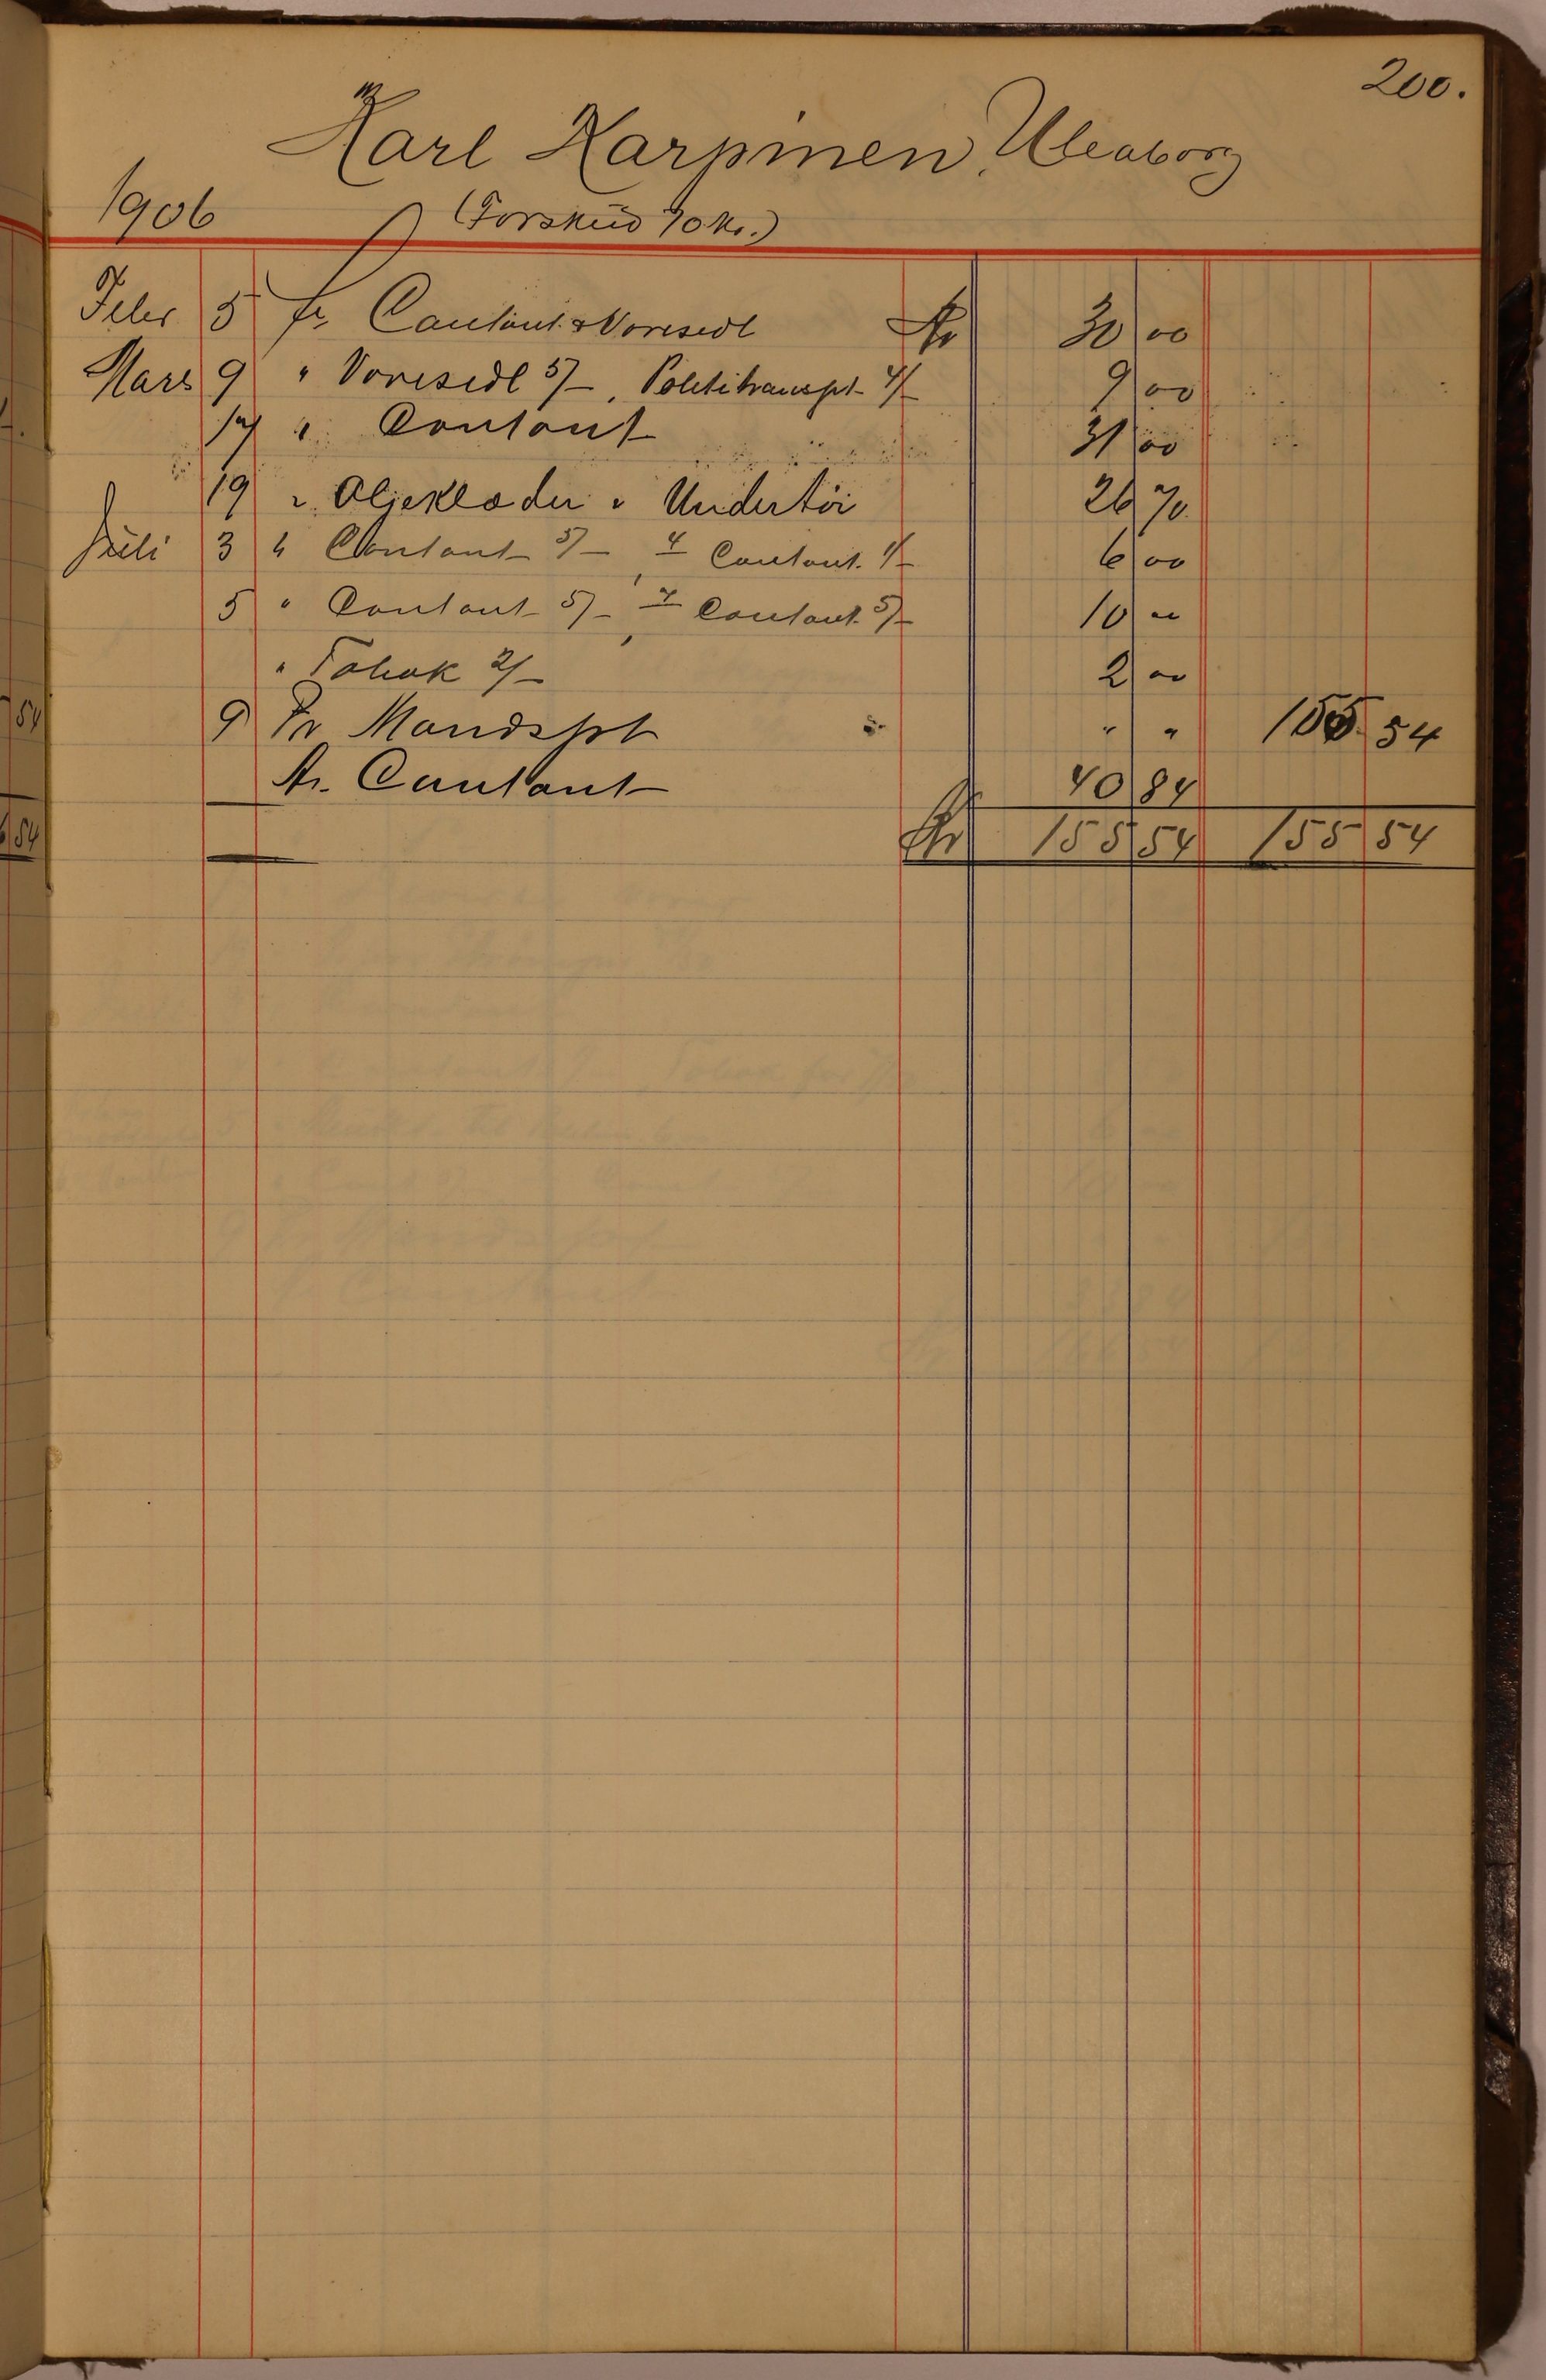 200.
Karl Karpinen, Uleaborg
1906 (Forskud 70 Kr.)
Febr 5 fr. Contant & Varesedl Kr 30 00
Mars 9 " Varesedl 5/-, Polititranspt 4/- 9 00
17 " Contant 31 00
19 " Oljeklæder " Undertöi 26 70
Juli 3 " Contant 5/-, 4 Contant 1/- 6 00
5 " Contant 5/-, 7 Contant 5/- 10 "
" Tobak 2/- 2 00
9 Pr Mandspt " " 155 54
Kr. Contant 40 84
Kr 155 54 155 54
54
54